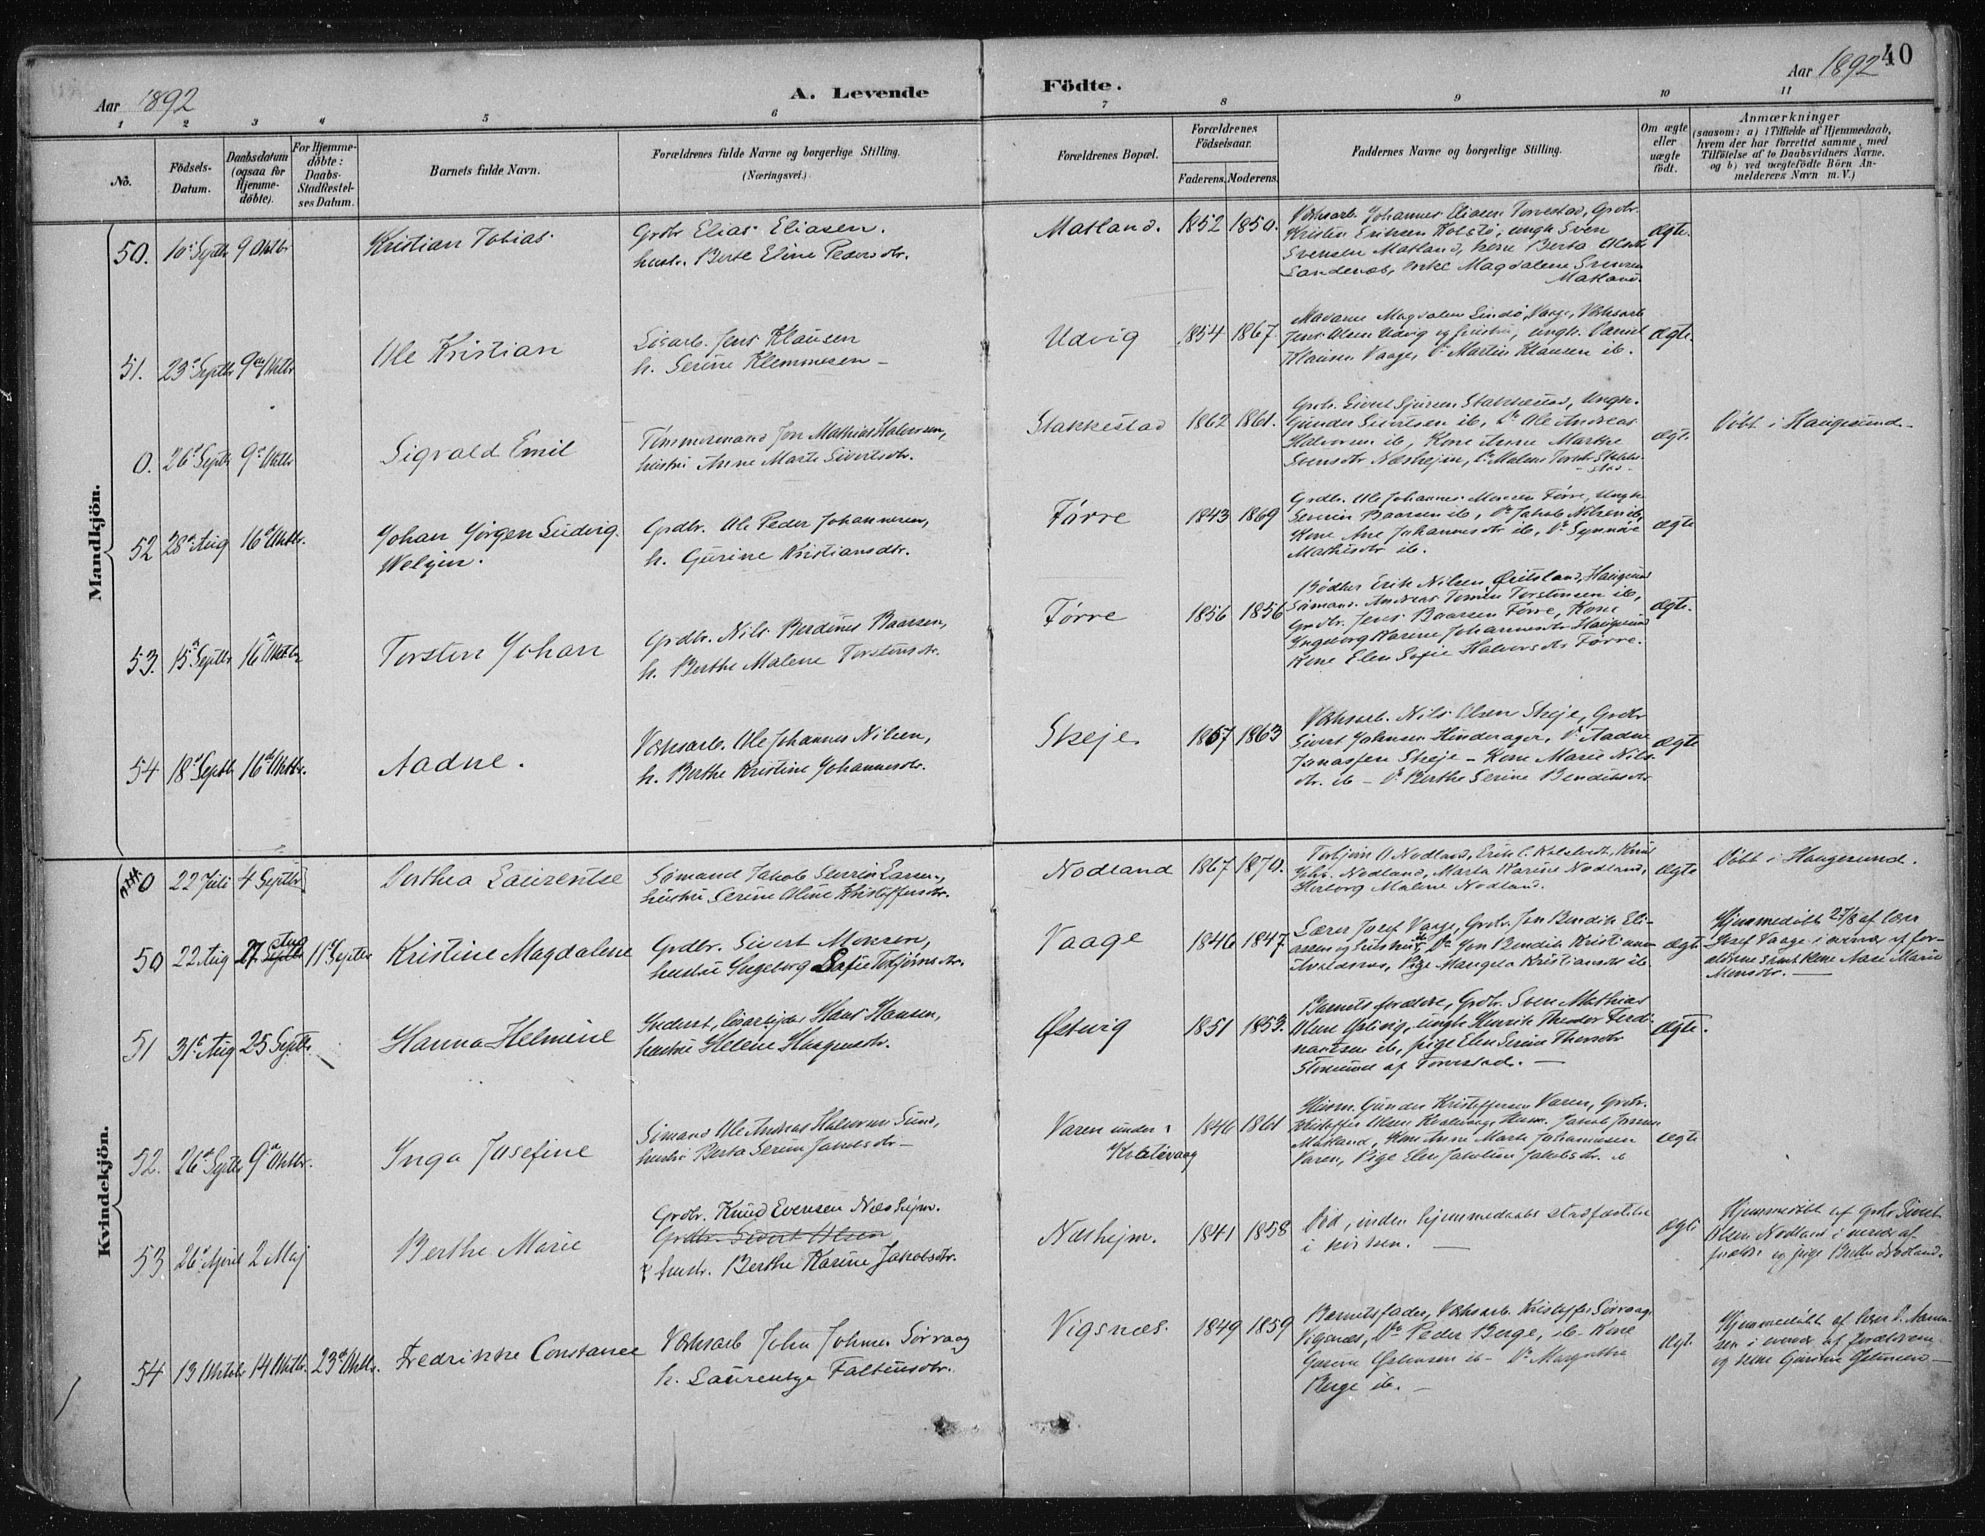 Aar 1892
A. Levende
Födte.
Aar 1892
40
1 2 3 4 5 6 7 8 9 10 11
No.
Födsels-
Datum.
Daabsdatum
(ogsaa for
Hjemme-
döbte).
For Hjemme-
döbte:
Daabs-
Stadfæstel-
ses Datum.
Barnets fulde Navn.
Forældrenes fulde Navne og borgerlige Stilling.
(Næringsvei.)
Forældrenes Bopæl.
Forældrenes
Födselsaar.
Faderens. Moderens.
Faddernes Navne og borgerlige Stilling.
Om ægte
eller
uægte
födt.
Anmærkninger
(saasom: a) i Tilfælde af Hjemmedaab,
hvem der har forrettet samme, med
Tilföielse af to Daabsvidners Navne.
og b) ved uægtefödte Börn An-
melderens Navn m. V.)
Mandkjön.
50. 10 Septbr 9 Oktbr
Kristian Tobias
Grdbr Elias Eliasen.
hustr. Berte Eline Pedersdtr.
Matland. 1852 1850.
Værksarb. Johannes Eliasen Torvestad, Grdbr.
Kristen Eriksen Kolstø, ungk Sven
Svensen Matland, kone Berta Olsdtr
Sandenæs, Enke Magdalene Svensen
Matland.
ægte.
51. 23 Septbr 9 Oktbr
Ole Kristian
Løsarb. Jens Klausen
h. Serine Klemmesen –
Udvig 1854 1867.
Madame Magdalene Lindø, Vaage, Værksarb
Jens Olsen Udvig og hustru, ungk. Daniel
Klausen Vaage, Do Martin Klausen ib.
ægte.
0. 26 Septbr 9 Oktbr
Sigvald Emil
Tømmermand Jon Mathias Halvorsen,
hustru Anne Marte Sivertsdtr.
Stakkestad 1862 1861.
Grdbr. Sivert Sjursen Stakkestad, Ungk.
Gunder Sivertsen ib, Do Ole Andreas
Halvorsen ib, Kone Anne Marthe
Svensdtr Næshejm, Do Malene
ægte.
Døbt i Haugesund.
52 28 Aug 16 Oktbr.
Johan Jørgen Ludvig
Welgin.
Grdbr. Ole Peder Johannesen,
h. Gurine Kristiansdtr.
Førre 1843 1869
Grdbr. Ole Johannes Monsen Førre, Ungk
Severin Baarsen ib, Do Jakob Nilsen ib,
Kone Ane Johannesdtr ib, Do Synnøve
Mathisdtr ib.
ægte
53. 15 Septbr 16 Oktbr
Torsten Johan
Grdbr. Nils Berdines Baarsen,
h. Berthe Malene Torstensdtr.
Førre 1856 1856
Bødker Erik Nilsen Øvitsland, Haugesund
Sømand. Andreas Tomin Torstensen ib,
Grdbr. Jens Baarsen Førre, Kone
Ingeborg Karine Johannesdtr Haugesund
Kone Elen Sofie Halvorsdtr Førre.
ægte.
54 18 Septbr 16 Oktbr.
Aadne.
Værksarb. Ole Johannes Nilsen,
h. Berthe Kristine Johannesdtr.
Skeje 1857 1863
Værksarb. Nils Olsen Skeje, Grdbr
Sivert Johnsen Hinderager, Do Aadne
Jonassen Skeje – Kone Marie Nils-
dtr. ib – Do Berthe Serine Bendiksdtr
ægte
Kvindekjön.
0 22 Juli 4 Septbr
Dorthea Laurentse
Sømand Jakob Severin Larsen,
hustru Serine Oline Kristoffersdtr.
Nodland 1867 1870.
Torbjørn O Nodland, Erik C. Kolstvedt, Knud
Nodland, Marta Karine Nodland,
Herborg Malene Nodland.
ægte
Døbt i Haugesund.
50 22 Aug 27 Aug 11 Septbr
Kristine Magdalene
Grdbr. Sivert Monsen,
hustru Ingeborg Sofie Torbjørnsdtr.
Vaage 1846 1847.
Lærer Josef Vaage, Grdbr. Jon Bendik Eli-
assen og hustru, Do Jon Bendik Kristiansen
Avaldsnes, Pige Mangela Kristiansdtr ib
ægte
Hjemmedøbt 27/8 af lærer
Josef Vaage i overvær af for-
ældrene samt kone Aase Marie
Monsdtr. –
51 31 Aug 25 Septbr.
Hanna Helmine
Inderst, løsarbejder Hans Hansen,
hustru Helene Hansdtr.
Østvig 1851 1853.
Barnets forældre, Grdbr. Sven Mathias
Olsen Østvig, ungk Henrik Theodor Ferdi-
nantsen ib, pige Elen Serine Thorsdtr
Storesund af Torvestad. –
ægte.
52. 26 Septbr 9 Oktbr.
Inga Josefine
Sømand Ole Andreas Halvorsen Sund,
hustru Berta Serine Jakobsdtr –
Varen under
Kvalevaag
1846 1861
Husm. Gunder Kristoffersen Varen, Grdbr.
Kristoffer Olsen Kvalevaag, Husm. Jakob Jonsen
Matland, Kone Anne Marte Johannesen
Varen, Pige Elen Jakobine Jakobsdtr. ib
ægte
53 26 April 2 Maj
Berthe Marie
Grdbr. Knud Evensen Næshejm.
Grdbr. Sivert Olsen
hustr. Berthe Karine Jakobsdtr.
Næshejm. 1841 1858
Død, inden hjemmedaabs stadfæstelse
i kirken. –
ægte
Hjemmedøbt af Grdbr Sivert
Olsen Nodland i nærvær af
forældr. og pige Berthe Nodland.
54 13 Oktbr 14 Oktbr. 23 Oktbr.
Fredrikke Constance
Værksarb John Johnsen Sørvaag
h. Laurentze Faltinsdtr.
Vigsnæs. 1849 1859
Barnets fader, Værksarb. Kristoffer Sørvaag
Vigsnæs, Do Peder Berge, ib. Kone
Gurine Østensen ib – Do Margrethe
Berge ib. –
ægt.
Hjemmedøbt af lærer
i overvær af forældrene
og kone Gurine Østensen –